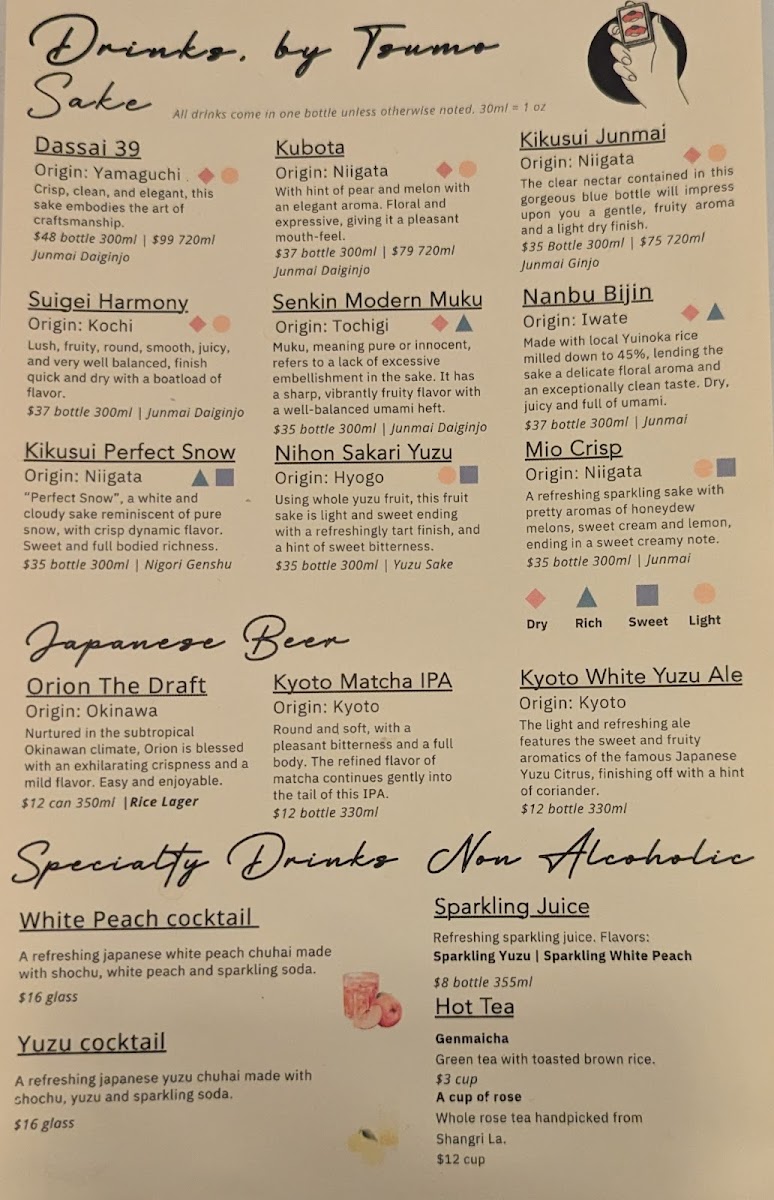 Drinks, by Tsumo
Sake
All drinks come in one bottle unless otherwise noted. 30ml = 1 oz
Dassai 39
Origin: Yamaguchi
Crisp, clean, and elegant, this
sake embodies the art of
craftsmanship.
$48 bottle 300ml | $99 720ml
Junmai Daiginjo
Kubota
Origin: Niigata
With hint of pear and melon with
an elegant aroma. Floral and
expressive, giving it a pleasant
mouth-feel.
$37 bottle 300ml | $79 720ml
Junmai Daiginjo
Kikusui Junmai
Origin: Niigata
The clear nectar contained in this
gorgeous blue bottle will impress
upon you a gentle, fruity aroma
and a light dry finish.
$35 Bottle 300ml | $75 720ml
Junmai Ginjo
Suigei Harmony
Origin: Kochi
Lush, fruity, round, smooth, juicy,
and very well balanced, finish
quick and dry with a boatload of
flavor.
$37 bottle 300ml | Junmai Daiginjo
Senkin Modern Muku
Origin: Tochigi
Muku, meaning pure or innocent,
refers to a lack of excessive
embellishment in the sake. It has
a sharp, vibrantly fruity flavor with
a well-balanced umami heft.
$35 bottle 300ml | Junmai Daiginjo
Nanbu Bijin
Origin: Iwate
Made with local Yuinoka rice
milled down to 45%, lending the
sake a delicate floral aroma and
an exceptionally clean taste. Dry,
juicy and full of umami.
$37 bottle 300ml | Junmai
Kikusui Perfect Snow
Origin: Niigata
"Perfect Snow", a white and
cloudy sake reminiscent of pure
snow, with crisp dynamic flavor.
Sweet and full bodied richness.
$35 bottle 300ml | Nigori Genshu
Nihon Sakari Yuzu
Origin: Hyogo
Using whole yuzu fruit, this fruit
sake is light and sweet ending
with a refreshingly tart finish, and
a hint of sweet bitterness.
$35 bottle 300ml | Yuzu Sake
Mio Crisp
Origin: Niigata
A refreshing sparkling sake with
pretty aromas of honeydew
melons, sweet cream and lemon,
ending in a sweet creamy note.
$35 bottle 300ml | Junmai
Dry Rich Sweet Light
Japanese Beer
Orion The Draft
Origin: Okinawa
Nurtured in the subtropical
Okinawan climate, Orion is blessed
with an exhilarating crispness and a
mild flavor. Easy and enjoyable.
$12 can 350ml |Rice Lager
Kyoto Matcha IPA
Origin: Kyoto
Round and soft, with a
pleasant bitterness and a full
body. The refined flavor of
matcha continues gently into
the tail of this IPA.
$12 bottle 330ml
Kyoto White Yuzu Ale
Origin: Kyoto
The light and refreshing ale
features the sweet and fruity
aromatics of the famous Japanese
Yuzu Citrus, finishing off with a hint
of coriander.
$12 bottle 330ml
Specialty Drinks
White Peach cocktail
A refreshing japanese white peach chuhai made
with shochu, white peach and sparkling soda.
$16 glass
Yuzu cocktail
A refreshing japanese yuzu chuhai made with
shochu, yuzu and sparkling soda.
$16 glass
Non Alcoholic
Sparkling Juice
Refreshing sparkling juice. Flavors:
Sparkling Yuzu | Sparkling White Peach
$8 bottle 355ml
Hot Tea
Genmaicha
Green tea with toasted brown rice.
$3 cup
A cup of rose
Whole rose tea handpicked from
Shangri La.
$12 cup